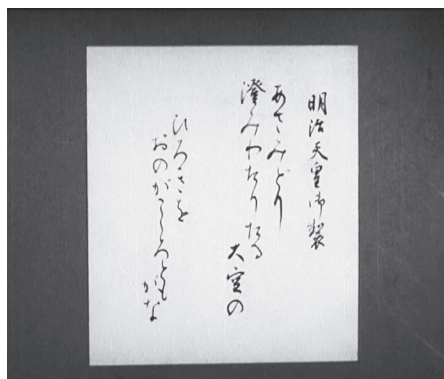 明治天皇御製
あさみどり
澄みわたりたる大空の
ひろきを
おのがこゝろとも
がな